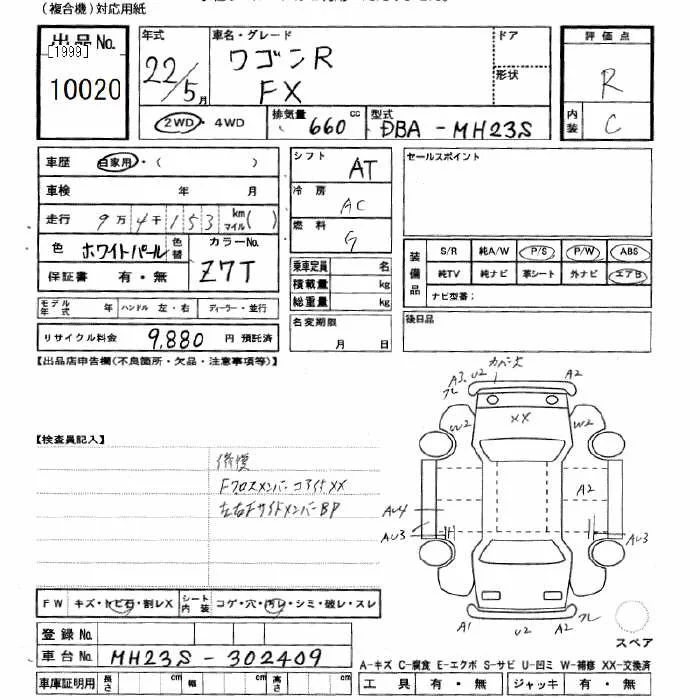 (複合機)対応用紙
出品No.
[1999]
10020
年式 22/5月
車名・グレード ワゴンR FX
ドア
形状
評価点 R
内装 C
2WD・4WD
排気量 660 cc
型式 DBA-MH23S
車歴 自家用・( )
車検 年 月
走行 9万4千153 km マイル( )
色 ホワイトパール 色替
カラーNo. Z7T
保証書 有・無
モデル年式 年 ハンドル 左・右 ディーラー・並行
リサイクル料金 9,880 円 預託済
シフト AT
冷房 AC
燃料 G
乗車定員 名
積載量 kg
総重量 kg
名変期限 月 日
セールスポイント
装備品
S/R 純A/W P/S P/W ABS
純TV 純ナビ 革シート 外ナビ エアB
ナビ型番:
後日品
【出品店申告欄(不良箇所・欠品・注意事項等)】
【検査員記入】
修復
Fクロスメンバー コアイナXX
左右Fサイドメンバー BP
A3 U2 カバー大 A2
フレ
XX
W2 W2
A2
AU4
AU3 AU3
A1 U2 A2 フレ
スペア
FW キズ・トビ石・割レX シート内装 コゲ・穴・汚レ・シミ・破レ・スレ
登録No.
車台No. MH23S-302409
車庫証明用 長さ cm 幅 cm 高さ cm
A-キズ C-腐食 E-エクボ S-サビ U-凹ミ W-補修 XX-交換済
工具 有・無 ジャッキ 有・無